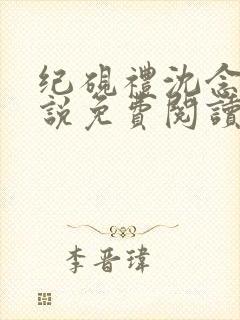 纪砚禮沈念
説免費閱讀
李晋瑋